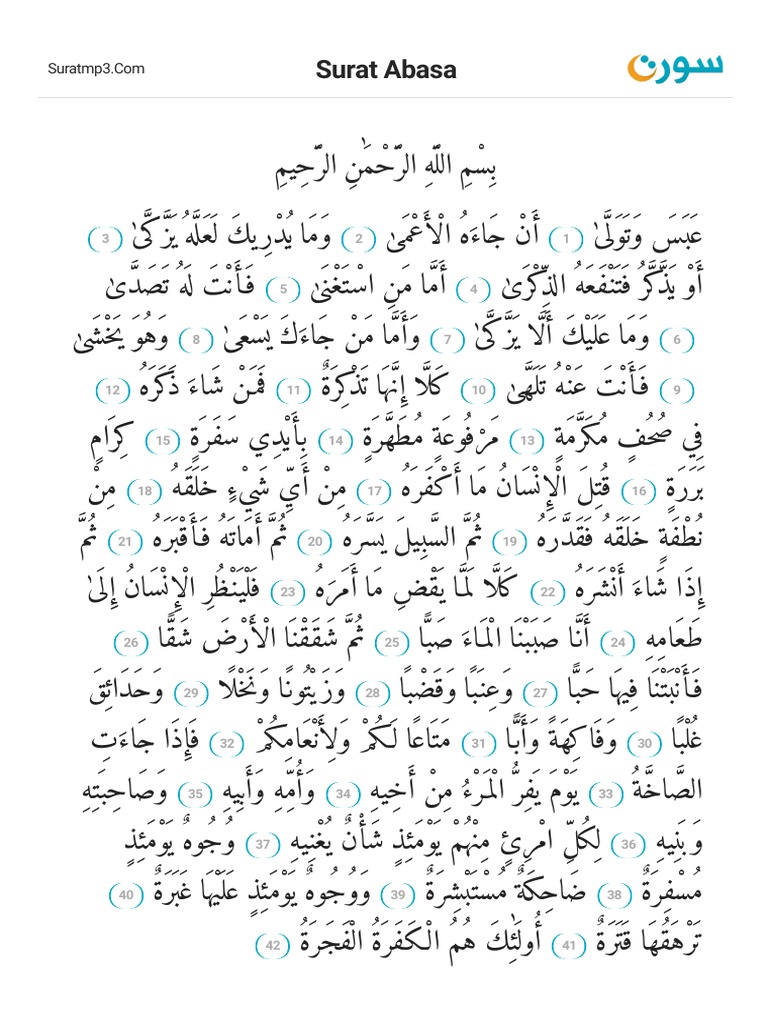 Suratmp3.Com
Surat Abasa
سورتن
بِسْمِ اللَّهِ الرَّحْمَٰنِ الرَّحِيمِ
عَبَسَ وَتَوَلَّىٰ (1) أَنْ جَاءَهُ الْأَعْمَىٰ (2) وَمَا يُدْرِيكَ لَعَلَّهُ يَزَّكَّىٰ (3)
أَوْ يَذَّكَّرُ فَتَنْفَعَهُ الذِّكْرَىٰ (4) أَمَّا مَنِ اسْتَغْنَىٰ (5) فَأَنْتَ لَهُ تَصَدَّىٰ
(6) وَمَا عَلَيْكَ أَلَّا يَزَّكَّىٰ (7) وَأَمَّا مَنْ جَاءَكَ يَسْعَىٰ (8) وَهُوَ يَخْشَىٰ
(9) فَأَنْتَ عَنْهُ تَلَهَّىٰ (10) كَلَّا إِنَّهَا تَذْكِرَةٌ (11) فَمَنْ شَاءَ ذَكَرَهُ (12)
فِي صُحُفٍ مُكَرَّمَةٍ (13) مَرْفُوعَةٍ مُطَهَّرَةٍ (14) بِأَيْدِي سَفَرَةٍ (15) كِرَامٍ
بَرَرَةٍ (16) قُتِلَ الْإِنْسَانُ مَا أَكْفَرَهُ (17) مِنْ أَيِّ شَيْءٍ خَلَقَهُ (18) مِنْ
نُطْفَةٍ خَلَقَهُ فَقَدَّرَهُ (19) ثُمَّ السَّبِيلَ يَسَّرَهُ (20) ثُمَّ أَمَاتَهُ فَأَقْبَرَهُ (21) ثُمَّ
إِذَا شَاءَ أَنْشَرَهُ (22) كَلَّا لَمَّا يَقْضِ مَا أَمَرَهُ (23) فَلْيَنْظُرِ الْإِنْسَانُ إِلَىٰ
طَعَامِهِ (24) أَنَّا صَبَبْنَا الْمَاءَ صَبًّا (25) ثُمَّ شَقَقْنَا الْأَرْضَ شَقًّا (26)
فَأَنْبَتْنَا فِيهَا حَبًّا (27) وَعِنَبًا وَقَضْبًا (28) وَزَيْتُونًا وَنَخْلًا (29) وَحَدَائِقَ
غُلْبًا (30) وَفَاكِهَةً وَأَبًّا (31) مَتَاعًا لَكُمْ وَلِأَنْعَامِكُمْ (32) فَإِذَا جَاءَتِ
الصَّاخَّةُ (33) يَوْمَ يَفِرُّ الْمَرْءُ مِنْ أَخِيهِ (34) وَأُمِّهِ وَأَبِيهِ (35) وَصَاحِبَتِهِ
وَبَنِيهِ (36) لِكُلِّ امْرِئٍ مِنْهُمْ يَوْمَئِذٍ شَأْنٌ يُغْنِيهِ (37) وُجُوهٌ يَوْمَئِذٍ
مُسْفِرَةٌ (38) ضَاحِكَةٌ مُسْتَبْشِرَةٌ (39) وَوُجُوهٌ يَوْمَئِذٍ عَلَيْهَا غَبَرَةٌ (40)
تَرْهَقُهَا قَتَرَةٌ (41) أُولَٰئِكَ هُمُ الْكَفَرَةُ الْفَجَرَةُ (42)